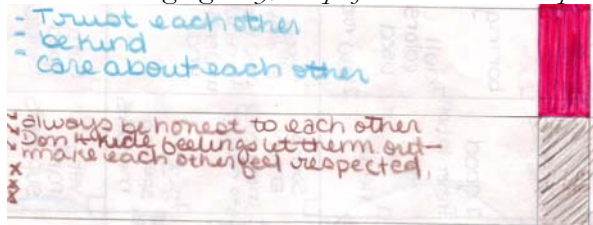 - Trust each other
- be kind
- care about each other
always be honest to each other
Don't hide feelings let therm out-
make each other feel respected,
x